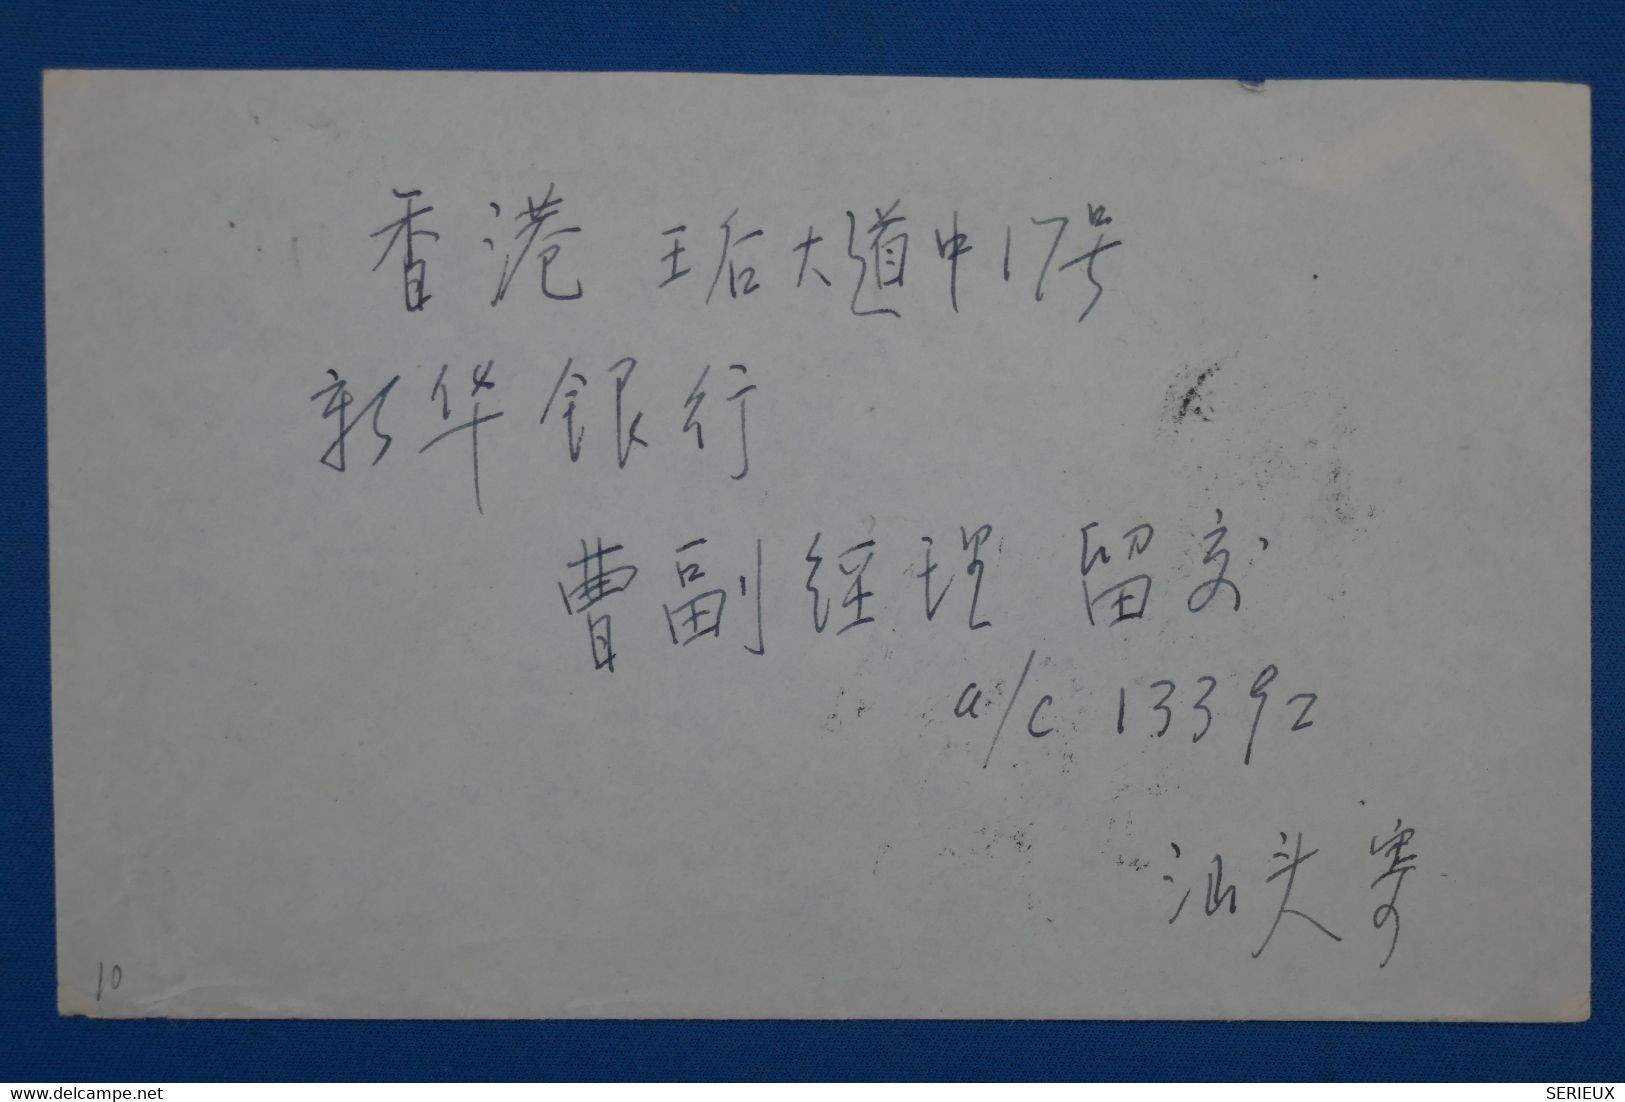 香港 王后大道中17号
新华银行
曹副经理 留交
a/c 13392
汕头寄
10
www.delcampe.net
SERIEUX